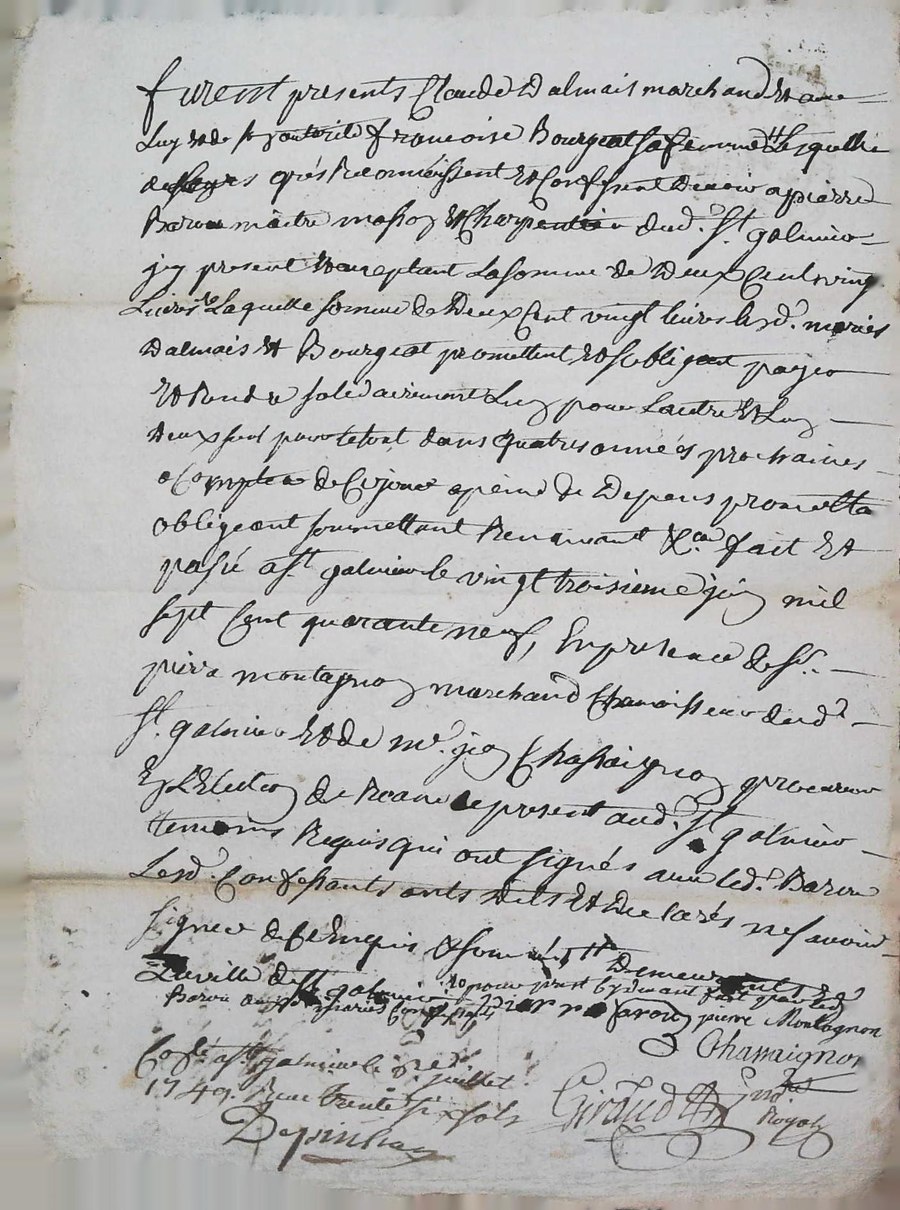 furent presents Claude Dalmais marchand et avec
Luy et de son autorité françoise Bourgeat sa femme Lesquelle
de gré Reconnoissent et Confessent devoir a pierre
Barou maitre masson et Charpentier dud. St. galmier
icy present et acceptant La somme de Deux Cent vingt
Livres Laquelle somme de Deux Cent vingt livres lesd. mariés
Dalmais et Bourgeat promettent et sobligent payer
Et Rendre solidairement Lun pour Lautre et Lun
deux seul pour le tout dans quatres années prochaines
a Compter de Cejour a peine de Depens promettant
obligeant soumettant Renonceant &ca. fait Et
passé a St. galmier le vingt troisieme juin mil
sept Cent quarante neuf, En presence de Sr.
pierre montagnon marchand Chamoisseur dud.
St. galmier Et de me. jean Chassaignon procureur
En L'Election de Roanne present aud. St. galmier
temoins Requis qui ont signés avec led. Barou
Lesd. Confessants ont dits Et Declarés ne savoir
signer de Ce Enquis & sommés Demeurants
La ville de St. galmier
Barou pierre Montagnon
Barou
Chassaignon
Colé. a St. galmier le juillet
1749. Recu trente six sols
Giraud Nore.
Royal